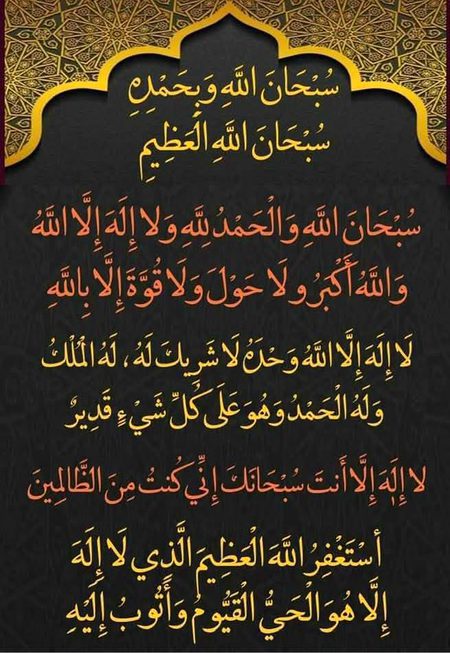 سُبْحَانَ اللَّهِ وَبِحَمْدِهِ
سُبْحَانَ اللَّهِ الْعَظِيمِ
سُبْحَانَ اللَّهِ وَالْحَمْدُ لِلَّهِ وَلا إِلَهَ إِلَّا اللَّهُ
وَاللَّهُ أَكْبَرُ و لَا حَوْلَ وَلَا قُوَّةَ إِلَّا بِاللَّهِ
لَا إِلَهَ إِلَّا اللَّهُ وَحْدَهُ لَا شَرِيكَ لَهُ ، لَهُ الْمُلْكُ
وَلَهُ الْحَمْدُ وَهُوَ عَلَى كُلِّ شَيْءٍ قَدِيرٌ
لا إِلَهَ إِلَّا أَنتَ سُبْحَانَكَ إِنِّي كُنتُ مِنَ الظَّالِمِينَ
أسْتَغْفِرُ اللَّهَ الْعَظِيمَ الَّذِي لَا إِلَهَ
إِلَّا هُوَ الْحَيُّ الْقَيُّومُ وَأَتُوبُ إِلَيْهِ